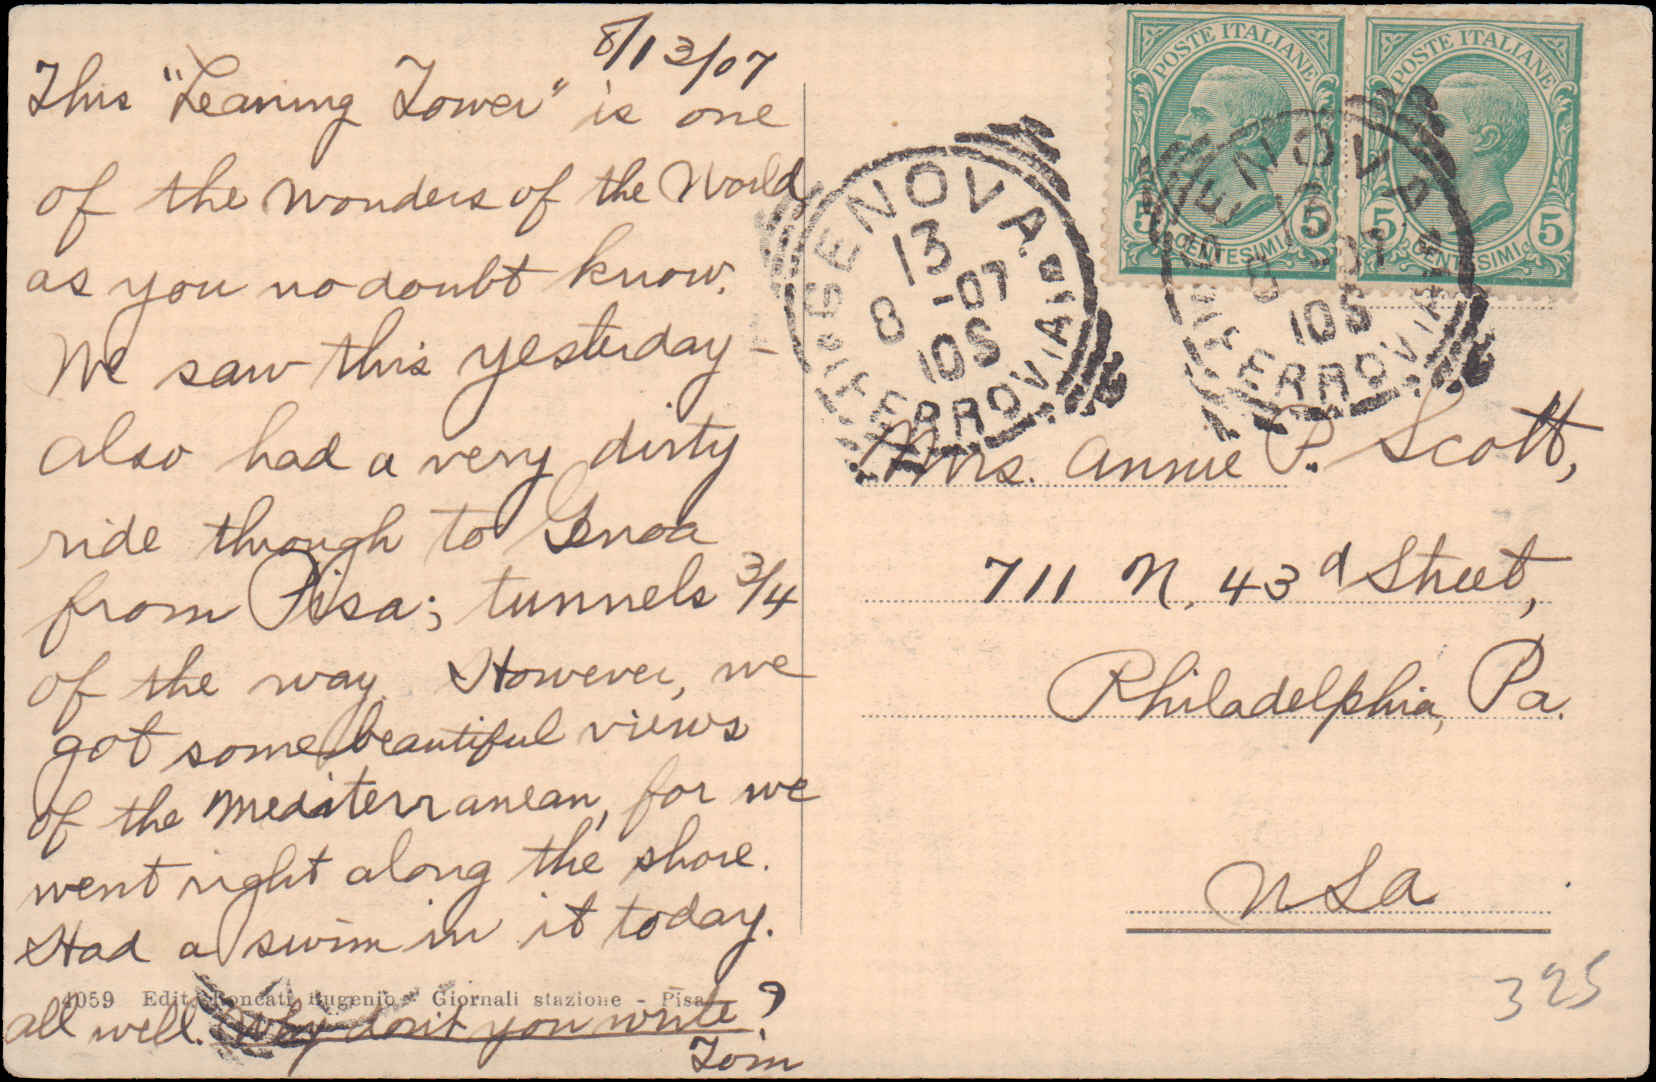 8/13/07
This "Leaning Tower" is one
of the Wonders of the World
as you no doubt know.
We saw this yesterday -
also had a very dirty
ride through to Genoa
from Pisa; tunnels 3/4
of the way. However, we
got some beautiful views
of the Mediterranean, for we
went right along the shore.
Had a swim in it today.
all well. Why don't you write?
Tom
4059 Edit. Roncati Eugenio - Giornali stazione - Pisa
POSTE ITALIANE
5 CENTESIMI 5
POSTE ITALIANE
5 CENTESIMI 5
GENOVA
13
8 -07
10S
FERROVIA
GENOVA
8 -07
10S
FERROVIA
Mrs. Annie P. Scott,
711 N. 43d Street,
Philadelphia, Pa.
USA
325